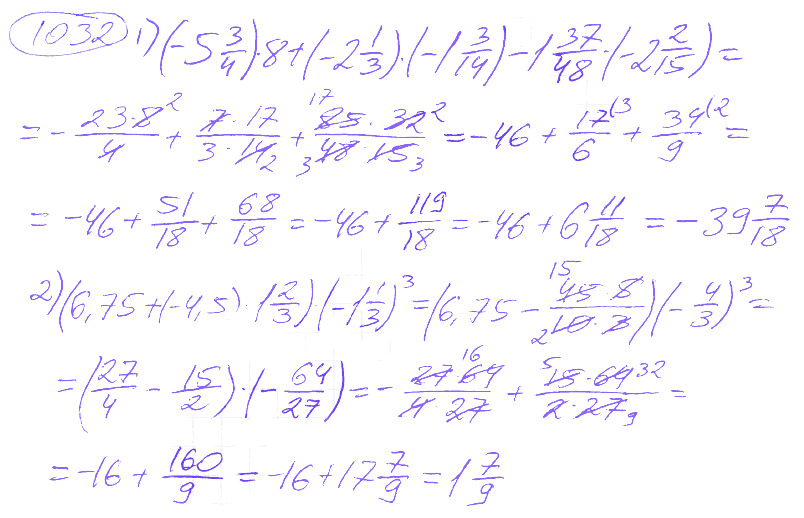 1032 1) (-5 3/4)·8+(-2 1/3)·(-1 3/14)-1 37/48·(-2 2/15)=
=-23·8 2/4+7·17/3·14 2+17 85·32 2/3 48·15 3=-46+17(3/6+34(2/9=
=-46+51/18+68/18=-46+119/18=-46+6 11/18=-39 7/18
2) (6,75+(-4,5)·1 2/3)(-1 1/3)³=(6,75-15 45·8/2 10·3)(-4/3)³=
=(27/4-15/2)·(-64/27)=-27·16 64/4·27+5 15·64 32/2·27 9=
=-16+160/9=-16+17 7/9=1 7/9